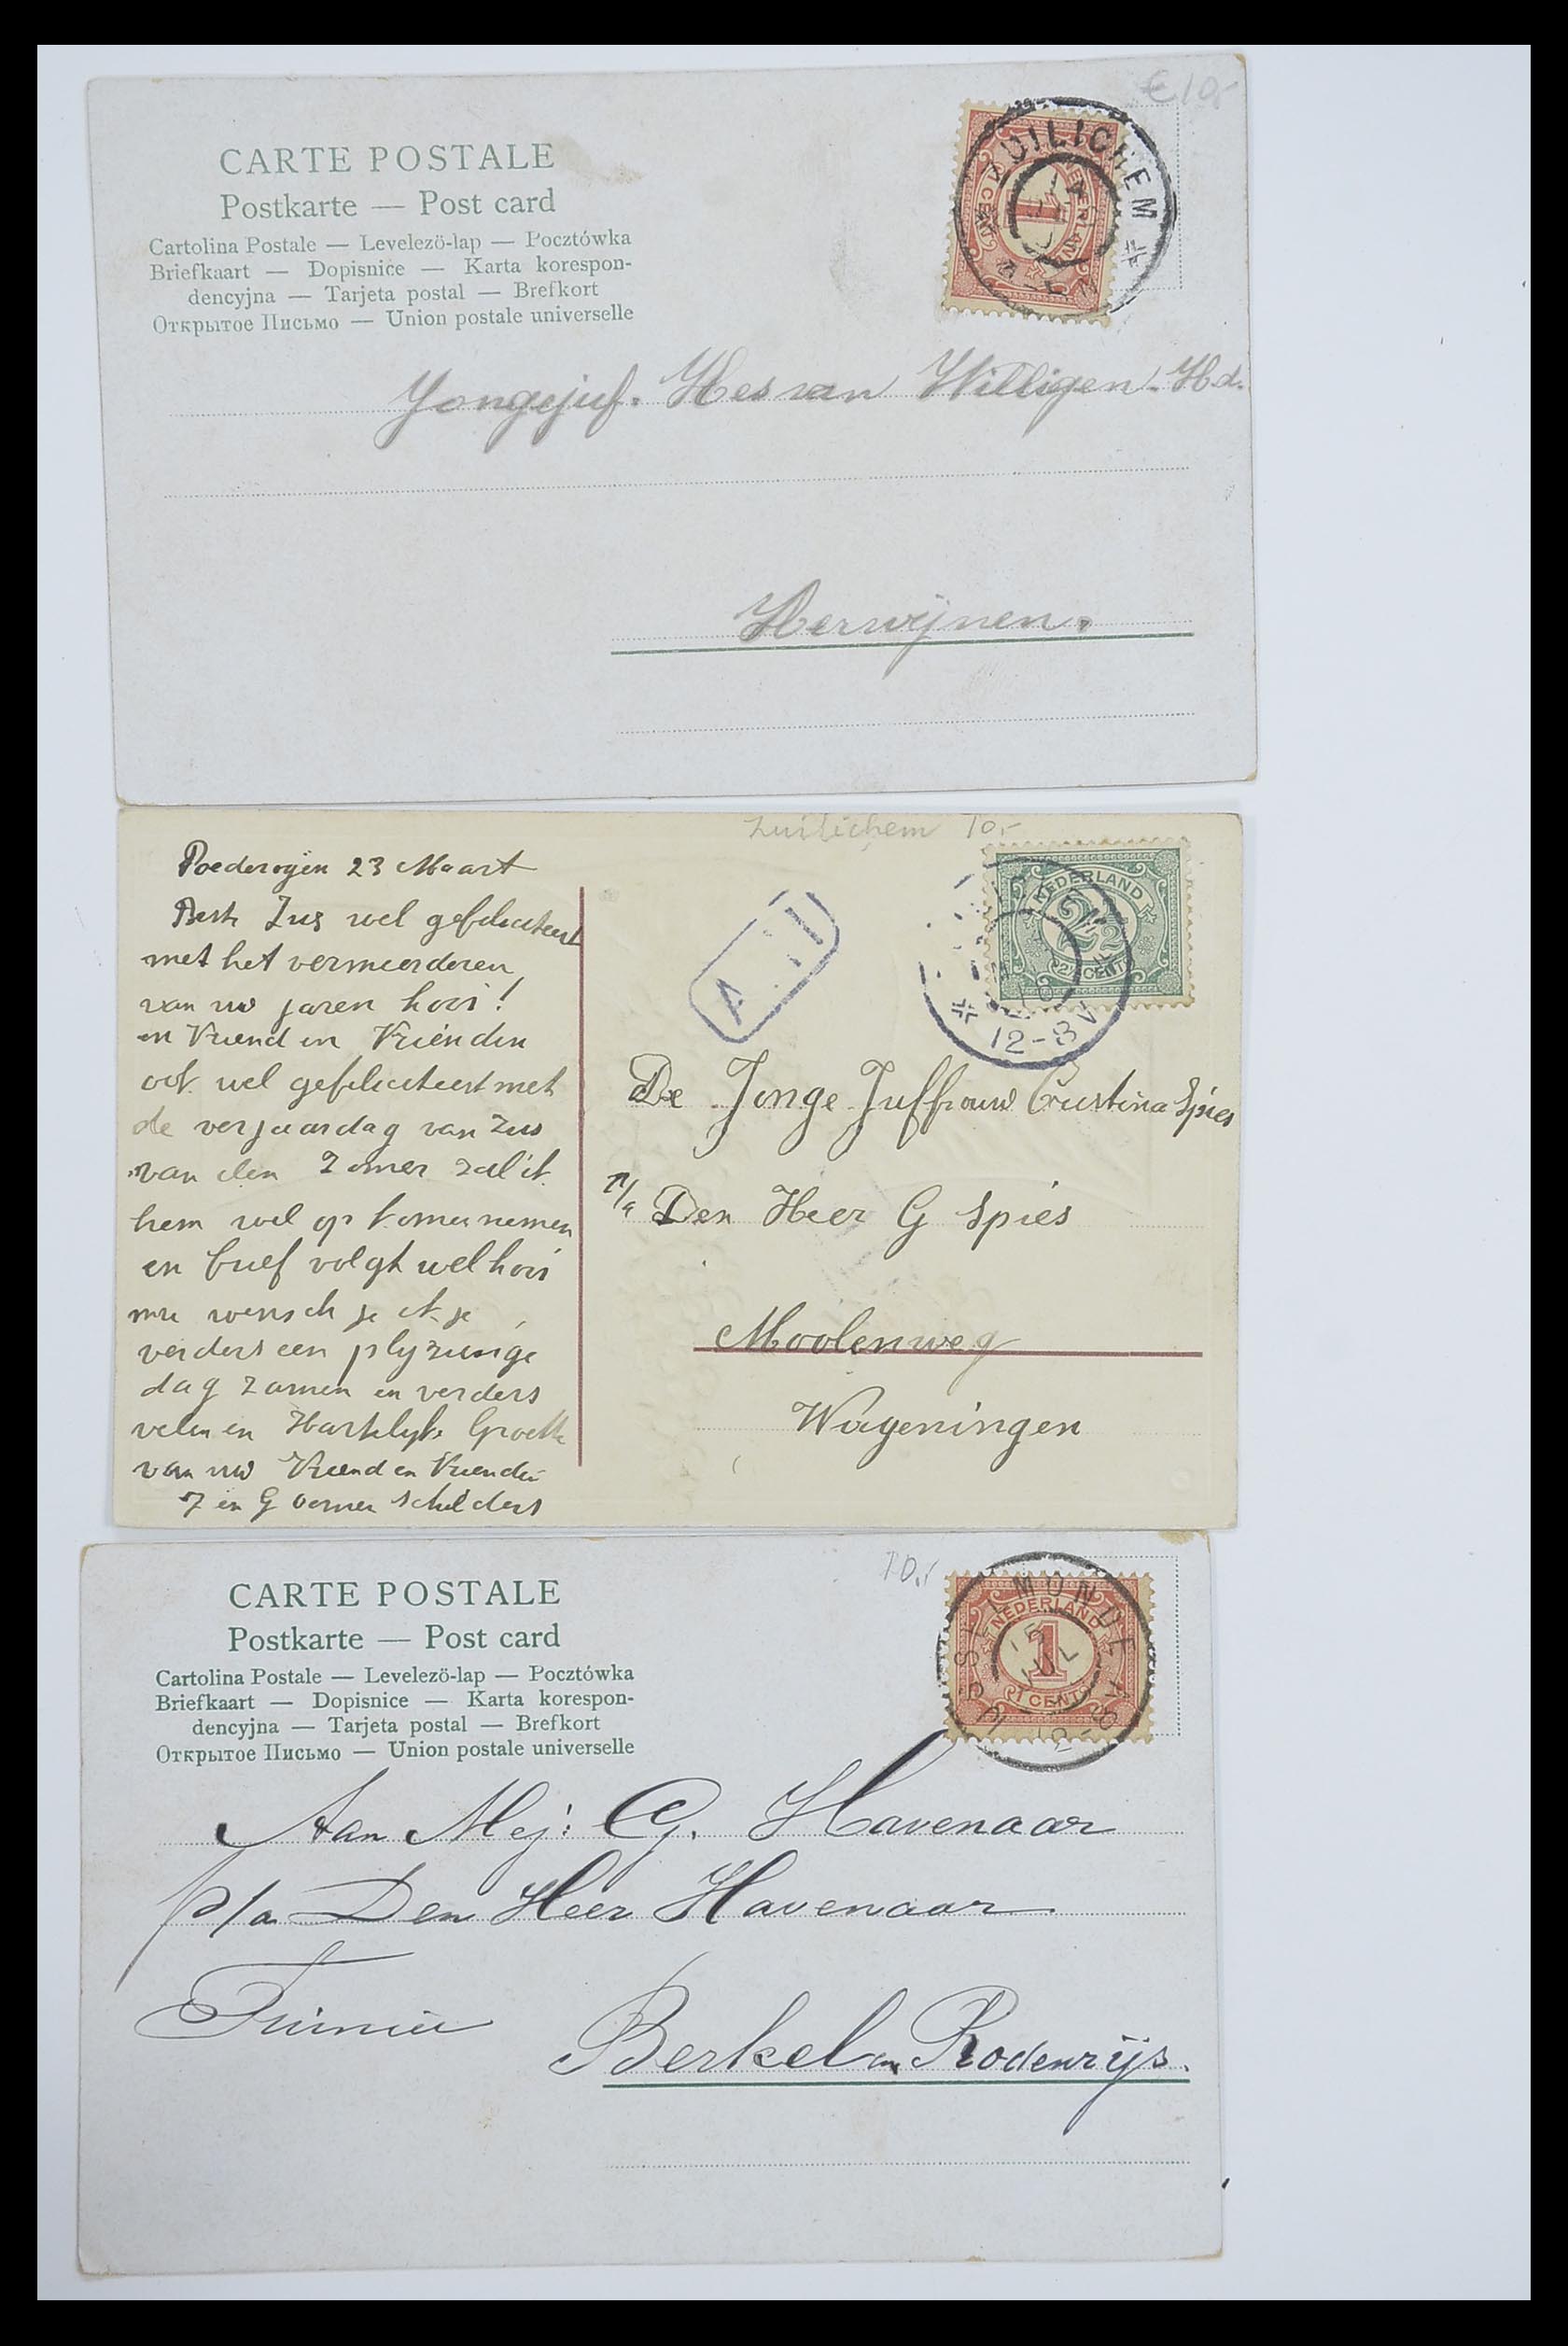 € 10,-
CARTE POSTALE
Postkarte — Post card
Cartolina Postale — Levelező-lap — Pocztówka
Briefkaart — Dopisnice — Karta korespon-
dencyjna — Tarjeta postal — Brefkort
Открытое Письмо — Union postale universelle
ZUILICHEM
NEDERLAND
1
1 CENT
Jongejuf. Hes van Willigen. Hd.
Herwijnen.
Zuilichem 10,-
Poederoijen 23 Maart
Beste Zus wel gefeliciteert
met het vermeerderen
van uw jaren hoor!
en Vriend en Vriendin
ook wel gefeliciteert met
de verjaardag van Zus
van den Zomer zal ik
hem wel op komen nemen
en brief volgt wel hoor
nu wensch je ik je
verders een plyzierige
dag zamen en verders
velen en Hartelyke Groette
van uw Vriend en Vriendin
en G Schilders
NEDERLAND
2½
2½ CENT
12-8V
De Jonge Juffrouw Cristina Spies
P/a Den Heer G Spies
Moolenweg
Wageningen
10,-
CARTE POSTALE
Postkarte — Post card
Cartolina Postale — Levelező-lap — Pocztówka
Briefkaart — Dopisnice — Karta korespon-
dencyjna — Tarjeta postal — Brefkort
Открытое Письмо — Union postale universelle
IJSSELMONDE
NEDERLAND
1
1 CENT
Aan Mej: G. Havenaar
p/a Den Heer Havenaar
Berkel en Rodenrijs.